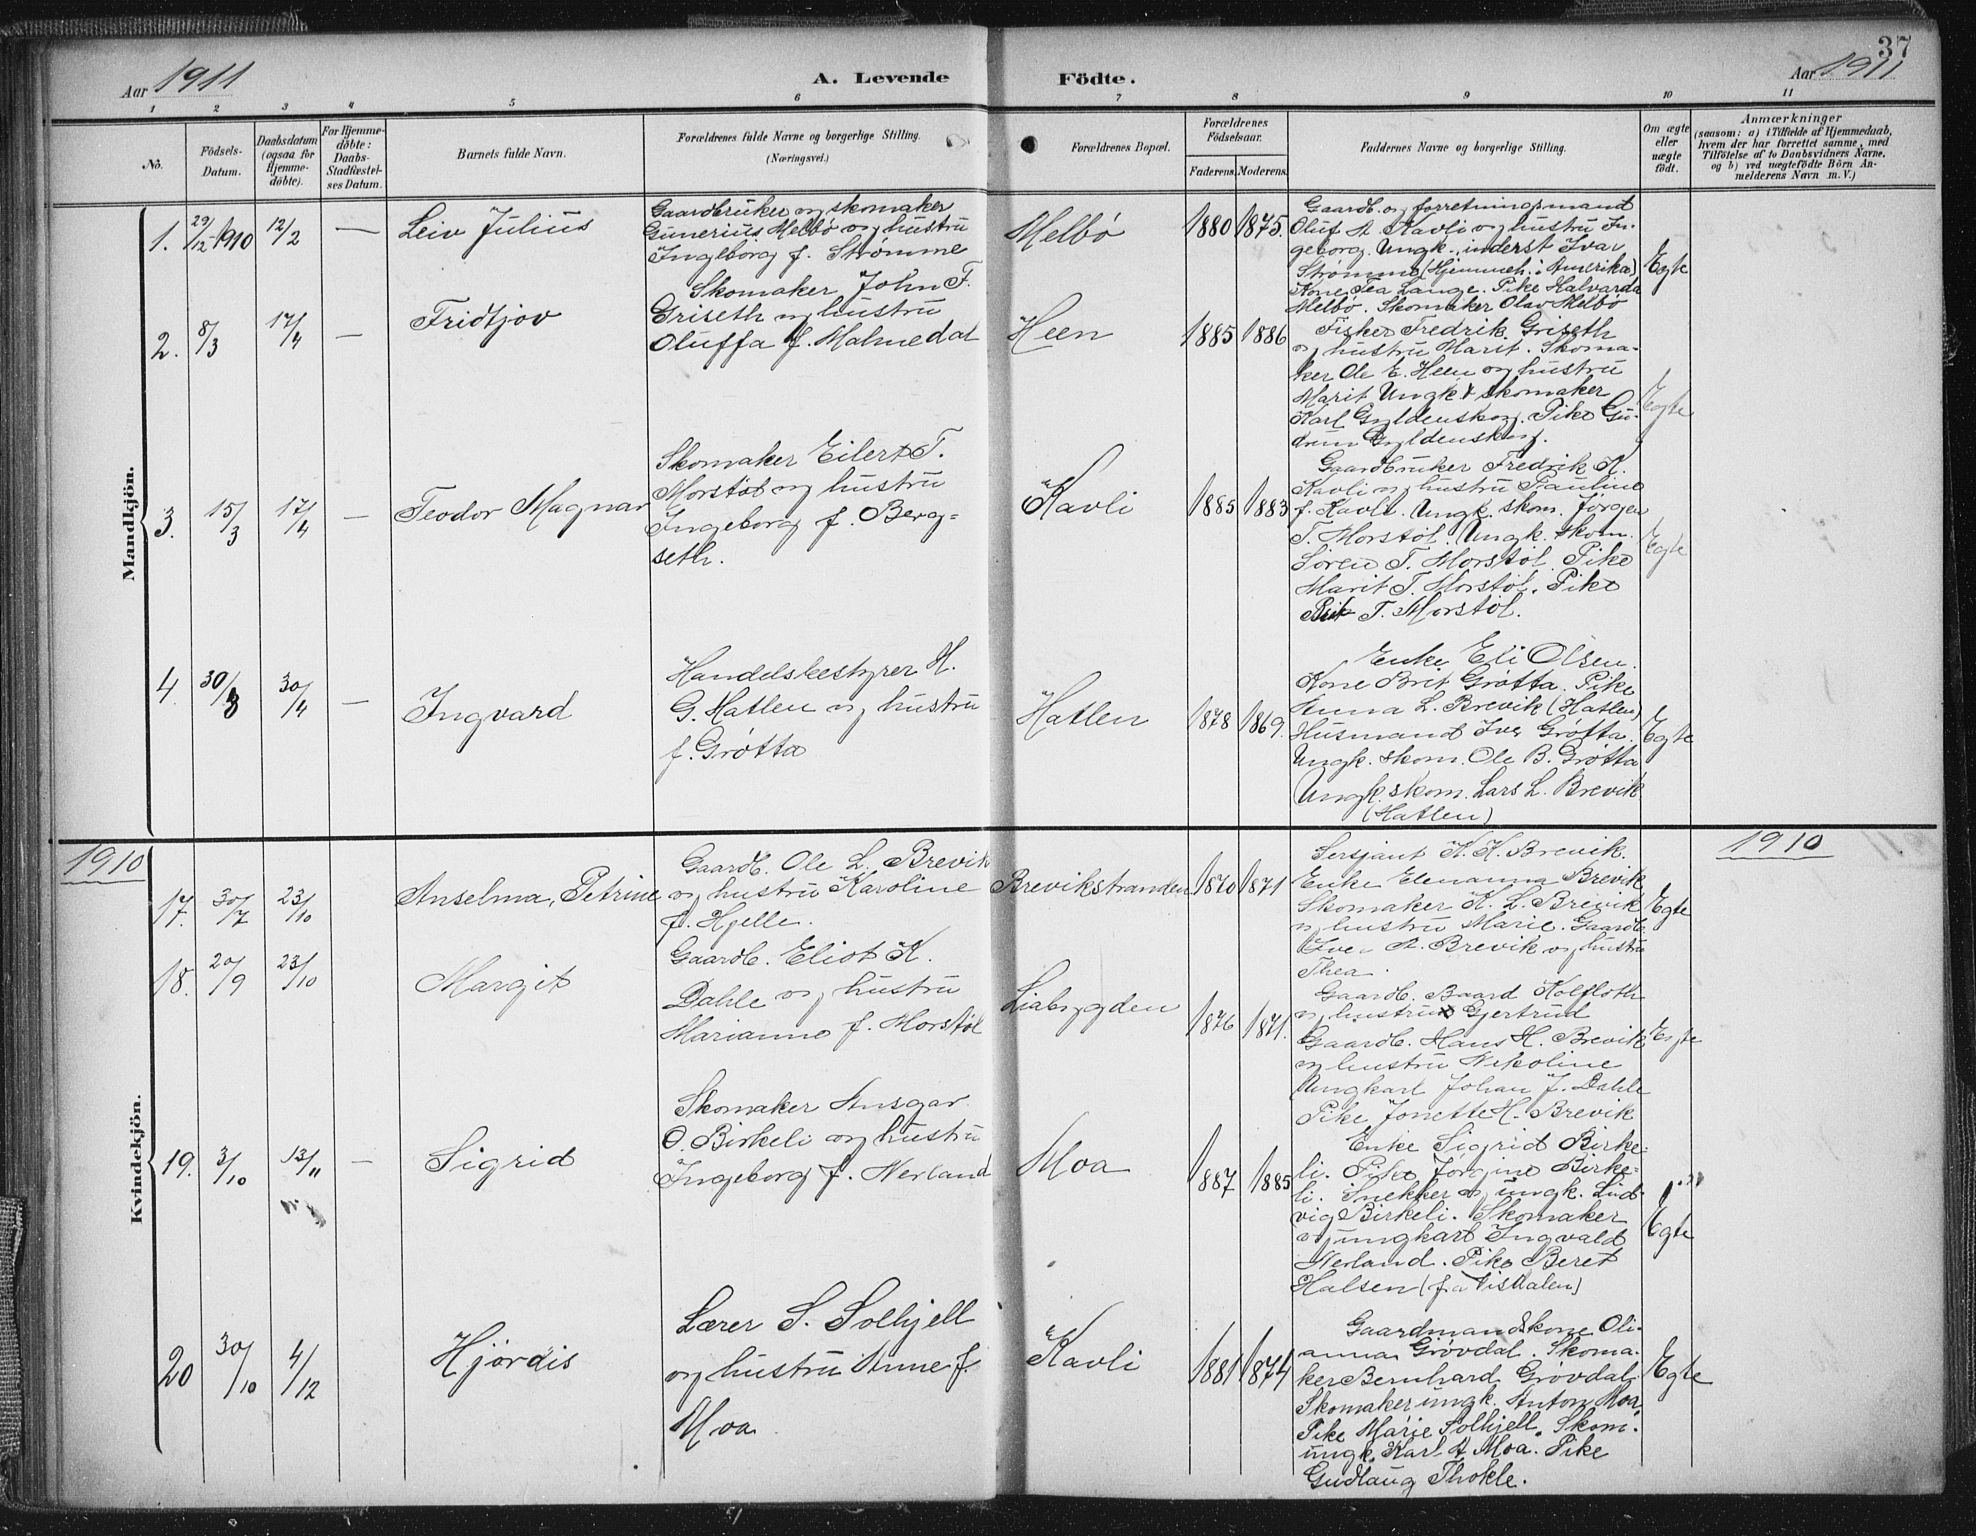 37
Aar 1911
A. Levende Födte.
Aar 1911
1 2 3 4 5 6 7 8 9 10 11
No.
Födsels-
Datum.
Daabsdatum
(ogsaa for
Hjemme-
döbte).
For Hjemme-
döbte:
Daabs-
Stadfæstel-
ses Datum.
Barnets fulde Navn.
Forældrenes fulde Navne og borgerlige Stilling.
(Næringsvei.)
Forældrenes Bopæl.
Forældrenes
Födselsaar.
Faderens. Moderens.
Faddernes Navne og borgerlige Stilling.
Om ægte
eller
uægte
födt.
Anmærkninger
(saasom: a) i Tilfælde af Hjemmedaab,
hvem der har forrettet samme, med
Tilföielse af to Daabsvidners Navne,
og b) ved uægtefödte Börn An-
melderens Navn m. V.)
Mandkjön.
1. 29/12 1910 12/2 — Leiv Julius
Gaardbruker og skomaker
Gunerius Melbø og hustru
Ingeborg f. Strømme
Melbø 1880 1875.
Gaardb. og forretningsmand
Oluf A Kavli og hustru In-
geborg. Ungk. inderst Ivar
Strømme (Hjemmeh. i Amerika)
Kone Tea Lange. Pike Halvarda
Melbø. Skomaker Olav Melbø
Egte
2. 8/3 17/4 — Fridtjov
Skomaker John F.
Griseth og hustru
Oluffa f. Malmedal
Heen 1885 1886
Fisker Fredrik Griseth
og hustru Marit. Skoma-
ker Ole E. Heen og hustru
Marit Ungk & skomaker
Karl Gyldenskog. Pike Gu-
drun Gyldenskog.
Egte
3. 15/3 17/4 — Teodor Magnar
Skomaker Eilert T.
Morstøl og hustru
Ingeborg f. Berg-
seth.
Kavli 1885 1883
Gaardbruker Fredrik K.
Kavli og hustru Pauline
f. Kavli. Ungk. skom. Jørgen
T. Morstøl. Ungk. skom.
Søren T. Morstøl. Pike
Marit T. Morstøl. Pike
T. Morstøl.
Egte
4. 30/3 30/4 — Ingvard
Handelsbestyrer H.
G. Hatlen og hustru
f. Grøtta
Hatlen 1878 1869.
Enke Eli Olsen.
Kone Brit Grøtta. Pike
Anna L. Brevik (Hatlen)
Husmand Iver Grøtta.
Ungk. skom. Ole B. Grøtta
Ungk. skom. Lars L. Brevik
(Hatlen)
Egte
1910
1910
Kvindekjön.
17. 30/7 23/10 Anselma, Petrine
Gaardb. Ole L. Brevik
og hustru Karoline
f. Hjelle.
Brevikstranden 1870 1871
Sersjant K. K. Brevik.
Enke Elenanna Brevik
Skomaker K. L. Brevik
og hustru Marie. Gaardb.
A. Brevik og hustru
Thea.
Egte
18. 20/9 23/10 Margit
Gaardb. Eliot K.
Dahle og hustru
Marianne f. Morstøl
Liabygden 1876 1871.
Gaardb. Baard Kolfloth
og hustru Gjertrud
Gaardb. Hans H. Brevik
og hustru Nikoline
Ungkarl Johan J. Dahle
Pike Jonette H. Brevik
Egte
19. 3/10 13/11 — Sigrid
Skomaker Ansgar
O. Birkeli og hustru
Ingeborg f. Nerland
Moa 1887 1885
Enke Sigrid Birke-
li. Pike Jørgine Birke-
li. Snekker og ungk. Lud-
vig Birkeli. Skomaker
og ungkarl Ingvald
Nerland. Pike Beret
Halsen (fra Visdalen)
Egte
20 30/10 4/12 Hjørdis
Lærer S. Solhjell
og hustru Anne f.
Moa
Kavli 1881 1874
Gaardmandskone Oli-
anna Grøvdal. Skoma-
ker Bernhard Grøvdal
Skomaker ungk. Anton Moa
Pike Marie Solhjell. Skom.
ungk. Karl A Moa. Pike
Gudlaug Thokle.
Egte